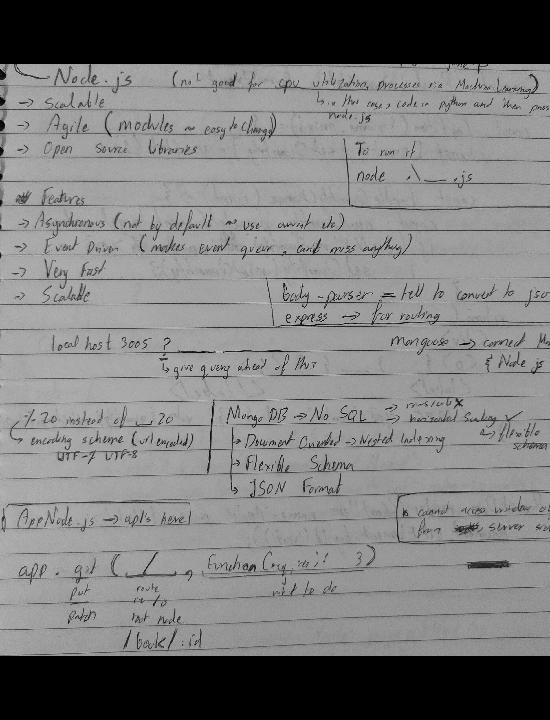 Node.js (not good for cpu utilization, processes via Machine Learning)
↳ in this case, code in python and then pass
node.js
→ Scalable
→ Agile (modules easy to change)
→ Open Source Libraries
To run it
node .\__.js
Features
→ Asynchronous (not by default use await etc)
→ Event Driven (makes event queue, can't miss anything)
→ Very Fast
→ Scalable
body-parser = tell to convert to json
express → for routing
local host 3005 ?
↳ give query ahead of this
mongoose → connect
& Node js
%20 instead of 20
encoding scheme (url encoded)
UTF-7 UTF-8
Mongo DB → No SQL
→ horizontal scaling ✓
→ flexible
schema
→ Document Oriented → Nested Indexing
→ Flexible Schema
→ JSON Format
AppNode.js → api's here
cannot access window
from server
app. get ( / , function (req, res) { })
put route what to do
patch
/book/:id